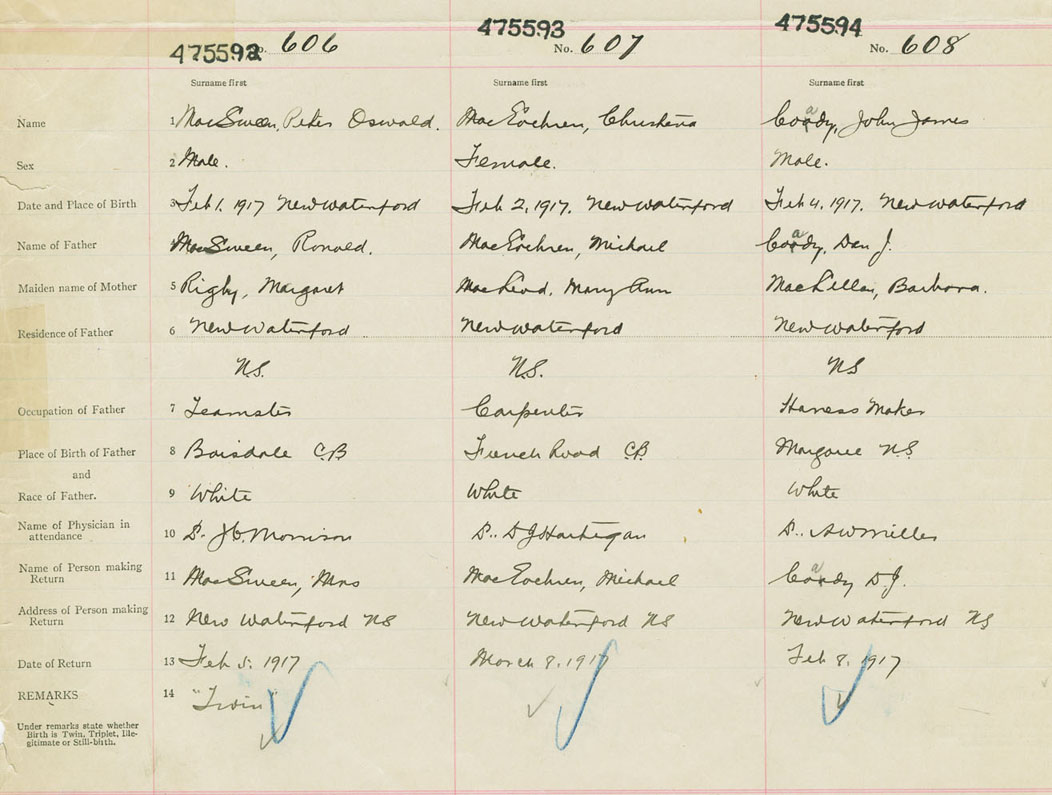 475592 No. 606 475593 No. 607 475594 No. 608
Surname first Surname first Surname first
Name 1 MacSween, Peter Oswald. MacEachren, Christena Coady, John James
Sex 2 Male. Female. Male.
Date and Place of Birth 3 Feb 1. 1917 New Waterford Feb 2, 1917. New Waterford Feb 4, 1917. New Waterford
Name of Father MacSween, Ronald. MacEachren, Michael Coady, Dan J.
Maiden name of Mother 5 Rigby, Margaret MacLeod, Mary Ann MacLellan, Barbara.
Residence of Father 6 New Waterford New Waterford New Waterford
N.S. N.S. NS
Occupation of Father 7 Teamster Carpenter Harness Maker
Place of Birth of Father 8 Boisdale C.B French Road C.B Margaree N.S
and
Race of Father. 9 White White White
Name of Physician in
attendance 10 D. Morrison D.. DJ Hartigan D.. AW Miller
Name of Person making
Return 11 MacSween, Mrs MacEachren, Michael Coady D.J.
Address of Person making
Return 12 New Waterford NS New Waterford NS New Waterford NS
Date of Return 13 Feb 5. 1917 March 8. 1917 Feb 8. 1917
REMARKS 14 "Twin"
Under remarks state whether
Birth is Twin, Triplet, Ille-
gitimate or Still-birth.